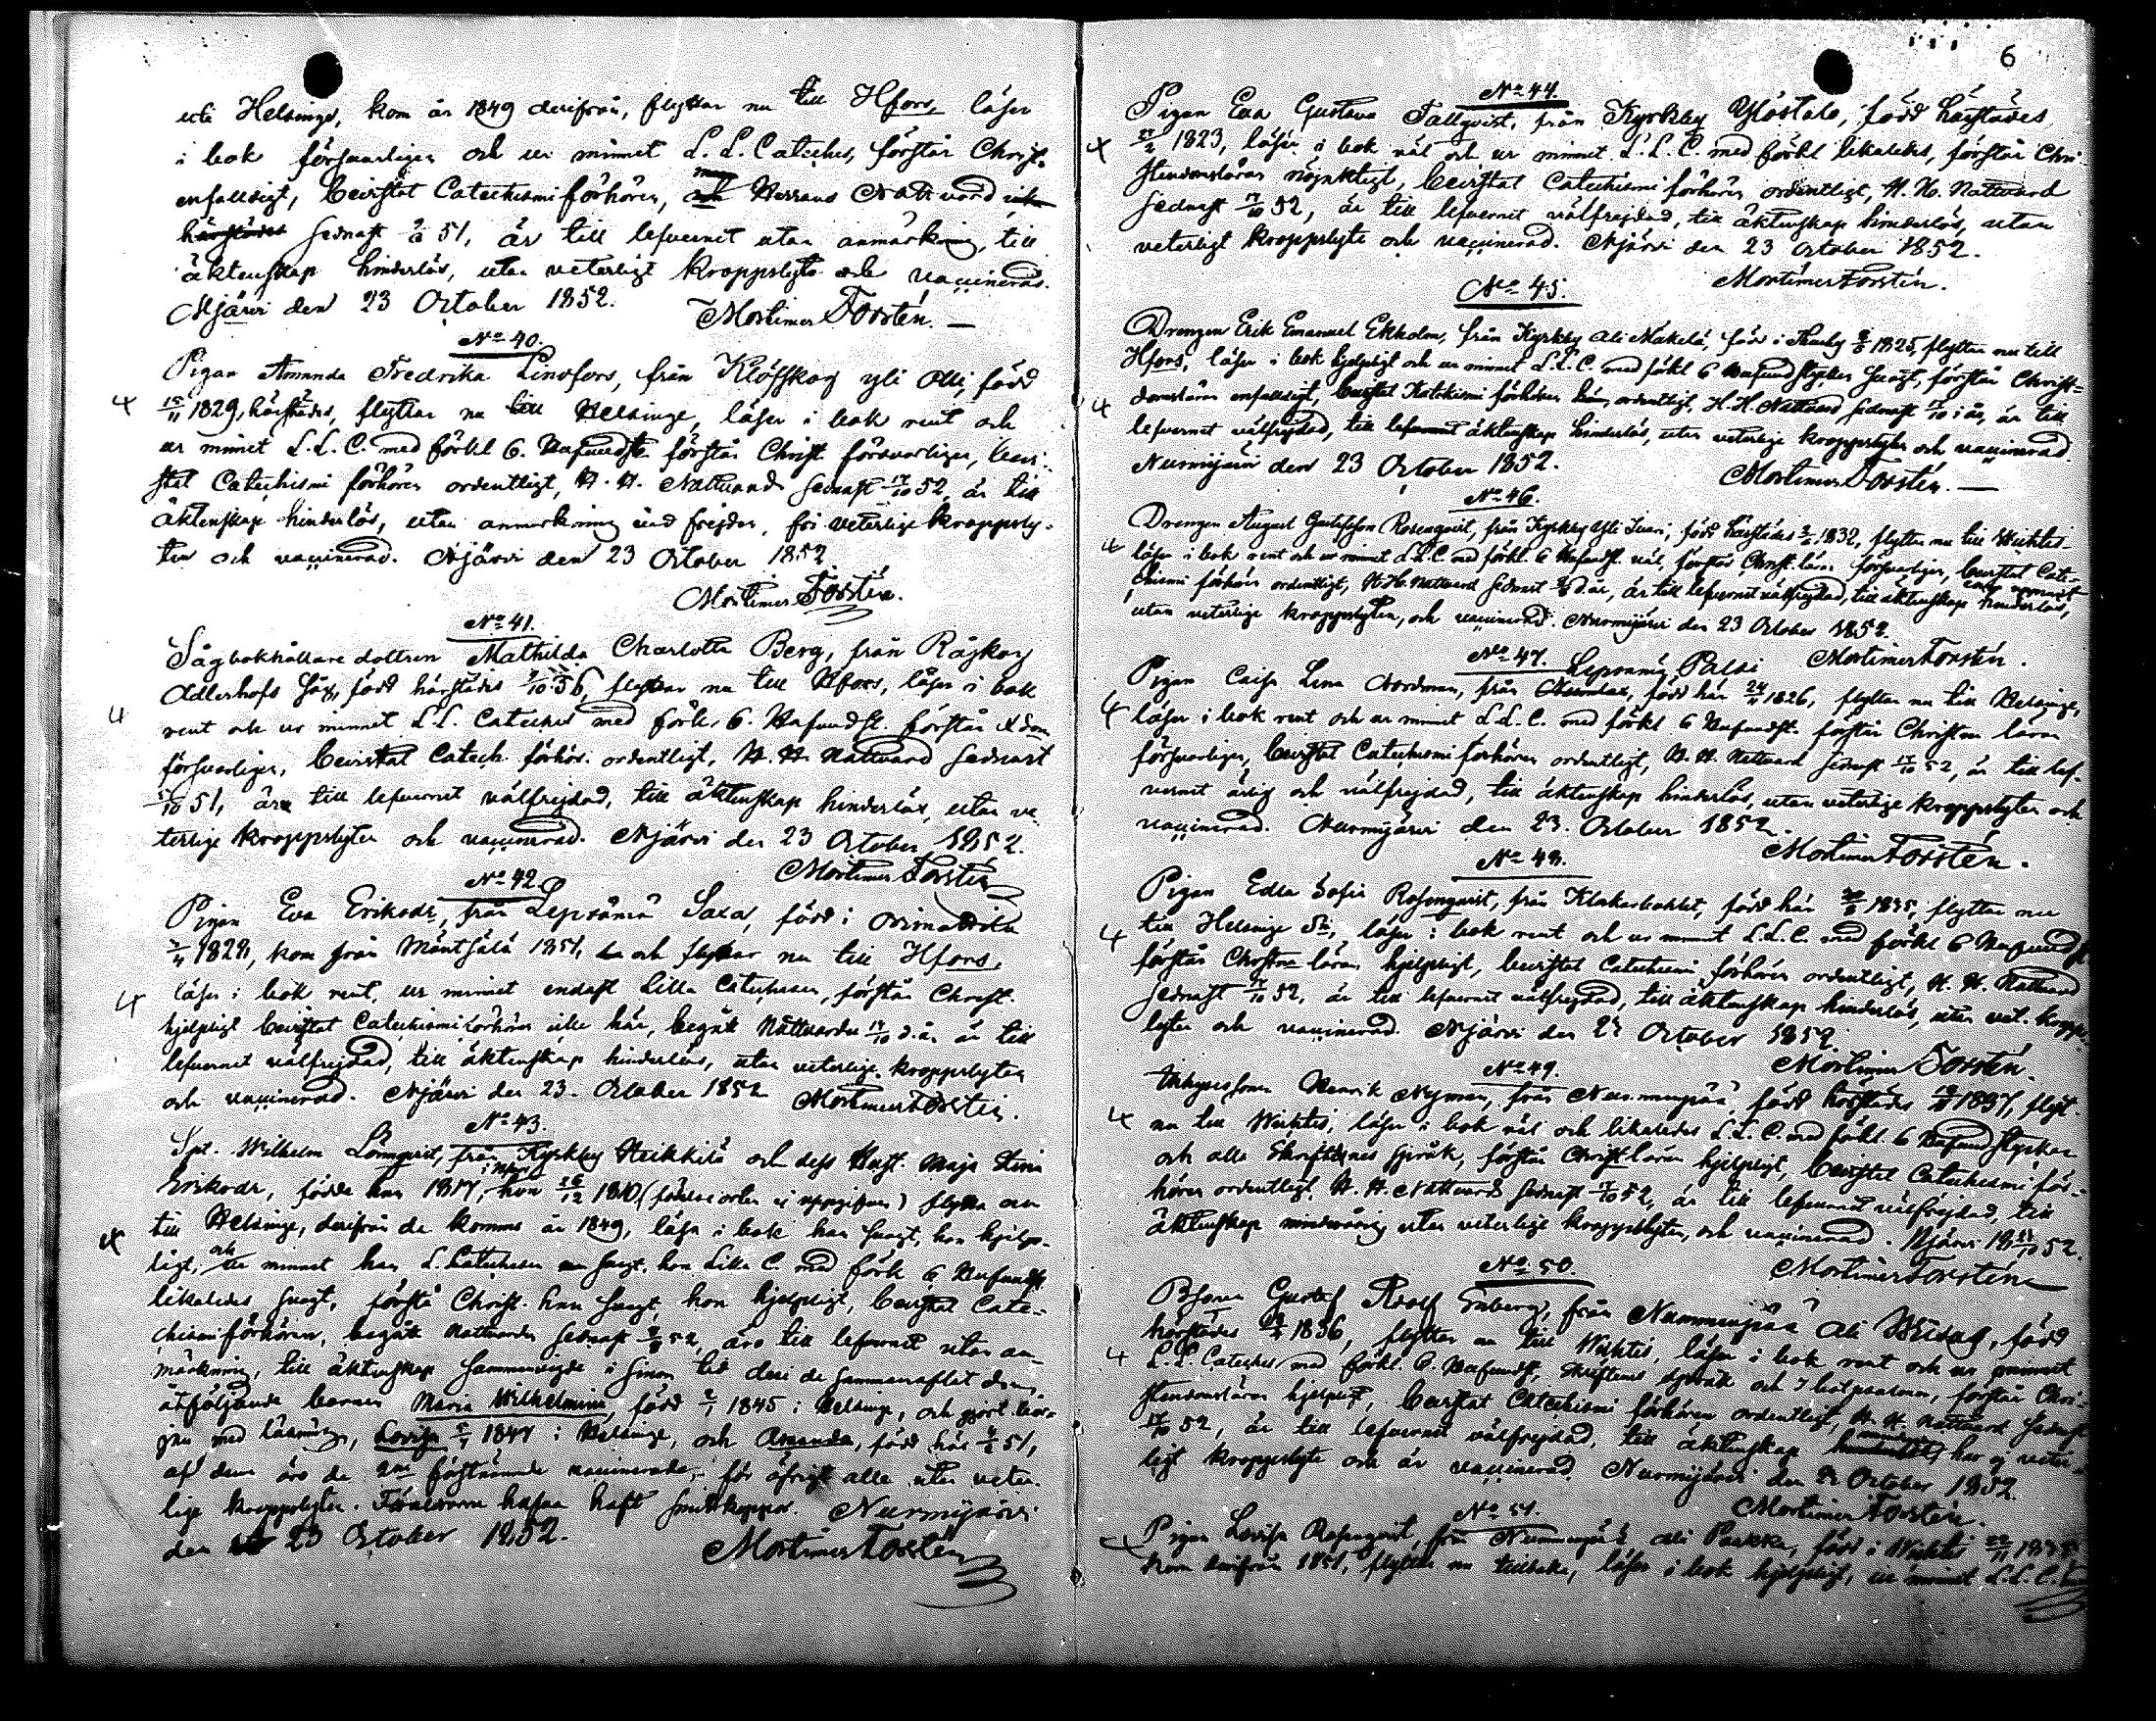 Helsinge, kom år 1849 derifrån, flyttar nu till Hfors, läser
i bok försvarligen och ur minnet L. L. Cateches, förstår Christ.
enfaldigt, bevistat Catechismi förhören, Herrans Nattvard
härstädes sednast 51, är till lefvernet utan anmärkning, till
äktenskap hinderlös, utan veterligt kroppslyte och vaccinerad.
Njärvi den 23 October 1852. Mortimer Forstén.
No 40.
Pigan Amanda Fredrika Lindfors, från Klöfskog yli Olli, född
15/11 1829, härstädes, flyttar nu till Helsinge, läser i bok rent och
ur minnet L.L.C. med förkl 6. Hufvudst. förstår Christ. försvarligen, bevi-
stat Catechismi förhören ordentligt, H. H. Nattvard sednast 17/10 52, är till
äktenskap hinderlös, utan anmärkning vid frejden, fri veterlige kroppsly-
ten och vaccinerad. Njärvi den 23 October 1852
Mortimer Forstén.
No 41.
Sågbokhållare dottren Mathilda Charlotta Berg, från Rajkog
Adlerhofs såg, född härstädes 36, flyttar nu till Hfors, läser i bok
rent och ur minnet L.L. Cateches med förkl. 6. Hufvudst. förstår Xdom
försvarligen, bevistat Catech. förhör. ordentligt, H. H. Nattvard sednast
5/10 51, är till lefvernet välfrejdad, till äktenskap hinderlös, utan ve-
terlige kroppslyten och vaccinerad. Njärvi den 23 October 1852.
Mortimer Forstén
No 42
Pigan Eva Eriksdr, från Lepsämä Saxa, född i Orimattila
1828, kom från Mäntsälä 1851, och flyttar nu till Hfors,
läser i bok rent, ur minnet endast Lilla Catechesen, förstår Christ.
hjelpligt bevistat Catechismi förhören icke här, begått Nattvarden 17/10 d. å. är till
lefvernet välfrejdad, till äktenskap hinderlös, utan veterlige kroppslyten
och vaccinerad. Njärvi den 23. October 1852 Mortimer Forstén.
No 43.
Spt. Wilhelm Lönnqvist, från Kyrkby Heikkilä och dess Hust. Maja Stina
Eriksdr, födde han 1817, hon 26/12 1810 (födelse orten ej uppgifven) flytta nu
till Helsinge, derifrån de kommo år 1849, läsa i bok han svagt, hon hjelp-
ligt, och ur minnet han L. Catechesen svagt, hon Lilla C. med förkl 6 Hufvudst
likaledes svagt, förstå Christ. han svagt, hon hjelpligt, bevistat Cate-
chismi förhören, begått Nattvarden sednast 52, äro till lefvernet utan an-
märkning, till äktenskap sammanvigde i sinom tid deri de sammanaflat dem
åtföljande barnen Maria Wilhelmina, född 1845 i Helsinge, och gjort bör-
jan med läsning, Lovisa 1847 i Helsinge, och Amanda, född här 51,
af dem äro de 2ne förstnämnde vaccinerade, för öfrigt alla utan veter-
lige kroppslyten. Föräldrarne hafva haft smittkoppor. Nurmijärvi
den 23 October 1852. Mortimer Forstén
6
No 44.
Pigan Eva Gustava Tallqvist, från Kyrkby Ylöstalo, född härstädes
1823, läser i bok väl och ur minnet L. L. C. med förkl likaledes, förstår Chri-
stendomsläran nöjaktigt, bevistat Catechismi förhören ordentligt, H. H. Nattvard
sednast 17/10 52, är till lefvernet välfrejdad, till äktenskap hinderlös, utan
veterligt kroppslyte och vaccinerad. Njärvi den 23 October 1852.
Mortimer Forstén.
No 45.
Drengen Erik Emanuel Ekholm, från Kyrkby Ali Mäkelä, född i 1825, flyttar nu till
Hfors, läser i bok hjelpligt och ur minnet L.L.C. med förkl 6 Hufvudstycken svagt, förstår Christ-
domsläran enfaldigt, bevistat Katekismi förhören ordentligt, H.H. Nattvard sednast 17/10 i år, är till
lefvernet välfrejdad, till äktenskap hinderlös, utan veterlige kroppslyten och vaccinerad.
Nurmijärvi den 23 October 1852. Mortimer Forstén.
No 46.
Drengen August Gustafsson Rosenqvist, från Kyrkby Yli Juari, född härstädes 1832, flyttar nu till Wichtis
läser i bok rent och ur minnet L.L.C. med förkl. 6 Hufvudst. väl, förstår Christ. läran försvarligen, bevistat Cate-
chismi förhören ordentligt, H.H. Nattvard sednast d. år, är till lefvernet välfrejdad, till äktenskap hinderlös,
utan veterlige kroppslyten, och vaccinerad. Nurmijärvi den 23 October 1852.
Mortimer Forstén.
No 47. Lepsämä, Palsi
Pigan Caisa Lena Nordman, från född här 24/11 1826, flyttar nu till Helsinge,
läser i bok rent och ur minnet L.L.C. med förkl 6 Hufvudst. förstår Christna läran
försvarligen, bevistat Catechismi förhören ordentligt, H. H. Nattvard sednast 17/10 52, är till lef-
vernet ärlig och välfrejdad, till äktenskap hinderlös, utan veterlige kroppslyten och
vaccinerad. Nurmijärvi den 23. October 1852.
Mortimer Forstén.
No 48.
Pigan Edla Sofia Rosenqvist, från Klockarbohlet, född här 1835, flyttar nu
till Helsinge Sn, läser i bok rent och ur minnet L.L.C. med förkl 6 Hufvudst
förstår Christna läran hjelpligt, bevistat Catechismi förhören ordentligt, H. H. Nattvard
sednast 17/10 52, är till lefvernet välfrejdad, till äktenskap hinderlös, utan vet. kropps-
lyten och vaccinerad. Njärvi den October 1852.
Mortimer Forstén.
No 49.
Inhysessonen Henrik Nyman, från Nummenpää, född härstädes 1837, flytt.
nu till Wichtis, läser i bok väl och likaledes L.L.C. med förkl 6 Hufvudstycken
och alla Skriftenes språk, förstår Christ. läran hjelpligt, bevistat Catechismi för-
hören ordentligt, H. H. Nattvard sednast 52, är till lefvernet välfrejdad, till
äktenskap minderårig, utan veterlige kroppslyten, och vaccinerad. Njärvi 52.
Mortimer Forstén
No 50.
Bsonen Gustaf Adolf Enberg, från Nummenpää Ali född
härstädes 1836, flyttar nu till Wichtis, läser i bok rent och ur minnet
L.L. Cateches med förkl. 6. Hufvudst, Skriftenes språk och 7 botpsalmer, förstår Chri-
stendomsläran hjelpligt, bevistat Catechismi förhören ordentligt, H. H. Nattvard sednast
17/10 52, är till lefvernet välfrejdad, till äktenskap har ej veter-
ligt kroppslyte och är vaccinerad. Nurmijärvi den October 1852.
Mortimer Forstén.
No 51.
Pigan Lovisa Rosenqvist, från Nummenpää Ali Parkka, född i Wichtis
kom derifrån 1851, flyttar nu tillbaka, läser i bok hjelpligt, ur minnet L.L.C.